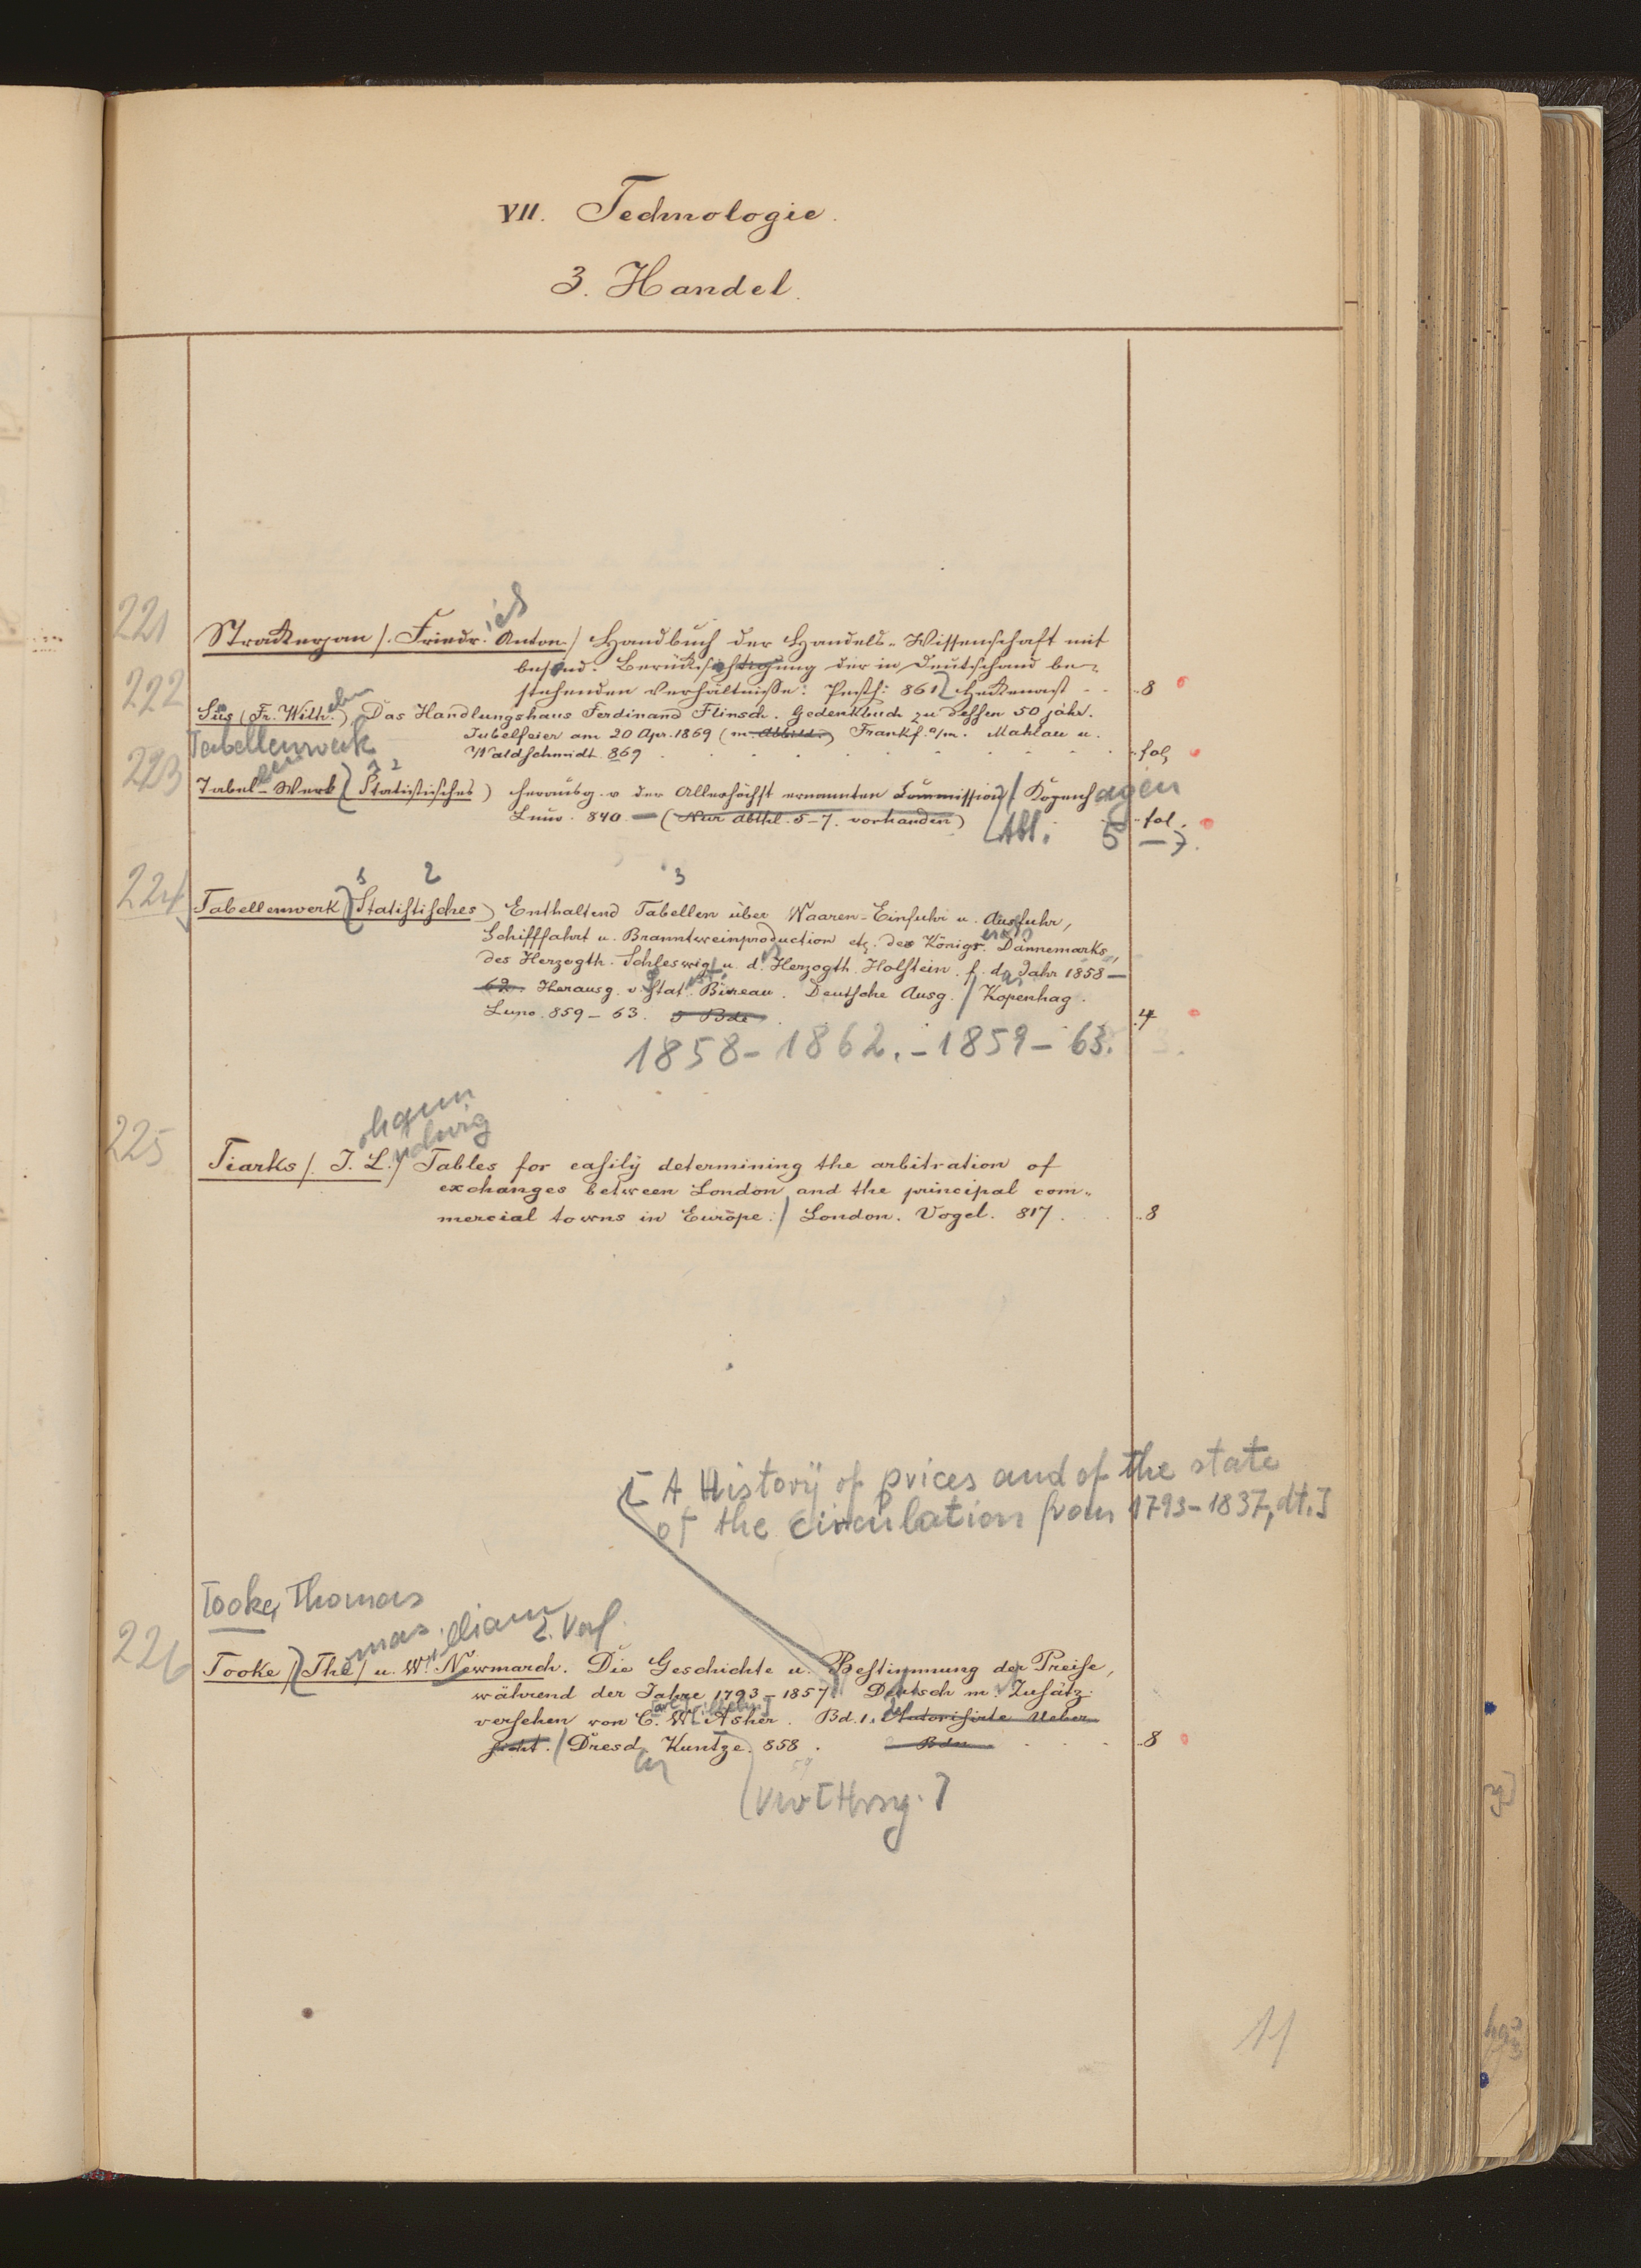 VII. Technologie.
3. Handel.
221
ich
Strackerjan (Friedr. Anton) Handbuch der Handels-Wissenschaft mit
besond. Berücksichtigung der in Deutschland be-
stehenden Verhältnisse. Pesth. 861 Heckenast - - 8
222
elm
Süs (Fr. Wilh.) Das Handlungshaus Ferdinand Flinsch. Gedenkbuch zu dessen 50 jähr.
Jubelfeier am 20 Apr. 1869 (m. Abbild.) Frankf. a/m. Mahlau u.
Waldschmidt. 869 . . . fol.
Tabellenwerk
223
len
1 2
Tabel-Werk (Statistisches) herausg. v der Allerhöchst ernannten Commission / Kopenhagen
Luno. 840. — (Nur Abthl. 5-7. vorhanden) fol.
Abt. 5 — 7.
224
1 2 3
Tabellenwerk (Statistisches) Enthaltend Tabellen über Waaren-Einfuhr u. Ausfuhr,
Schifffahrt u. Branntweinproduction etc. des Königr. Dännemarks,
des Herzogth. Schleswig u. d. Herzogth. Holstein. f. d. Jahr 1858 —
62. Herausg. v. Stat. Büreau. Deutsche Ausg. / Kopenhag.
Luno. 859 - 63. 5 Bde . 4
1858 - 1862. - 1859 - 63.
225
ohann
udwig
Tiarks (J. L.) Tables for easily determining the arbitration of
exchanges between London and the principal com-
mercial towns in Europe. / London. Vogel. 817 . . 8
[A History of prices and of the state
of the circulation from 1793-1837, dt.]
Tooke, Thomas
226
omas illiam 2. Verf.
Tooke (Th.) u. Wm. Newmarch. Die Geschichte u. Bestimmung der Preise,
während der Jahre 1793 - 1857. Deutsch m. Zusätz.
versehen von C. W. Asher. Bd. 1. Autorisirte Ueber
sicht. / Dresd. Kuntze. 858 . 2 Bde . . . 8
en
59
(Vw [Hrsg.]
11